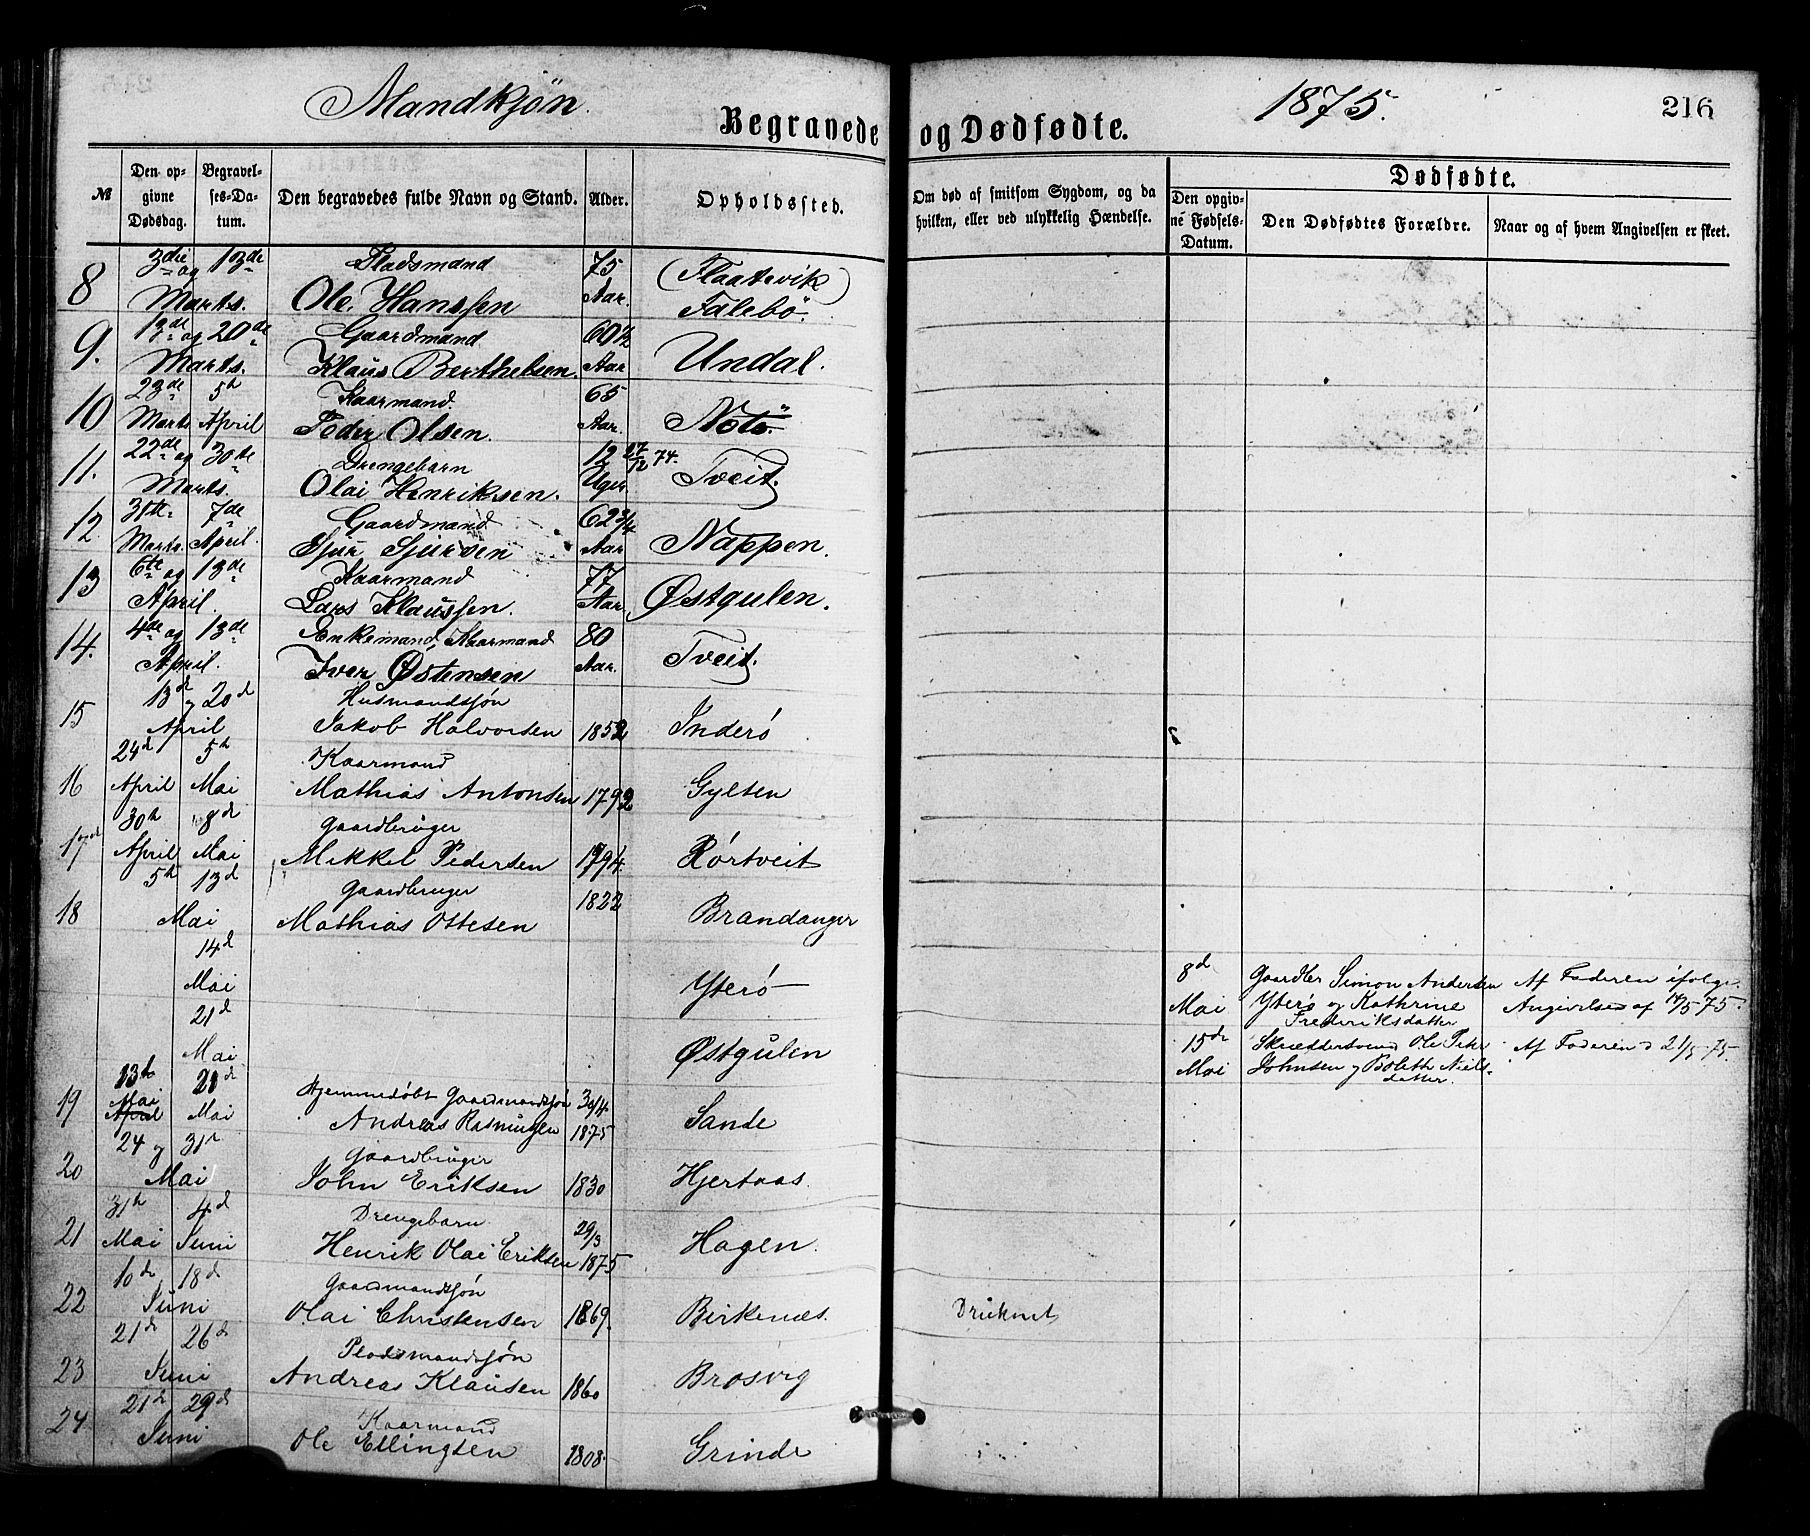 Mandkjøn.
Begravede og Dødfødte.
1875.
216
№
Den opgivne Dødsdag.
Begravelses-Datum.
Den begravedes fulde Navn og Stand.
Alder.
Opholdssted.
Om død af smitsom Sygdom, og da hvilken, eller ved ulykkelig Hændelse.
Dødfødte.
Den opgivne Fødsels-Datum.
Den Dødfødtes Forældre.
Naar og af hvem Angivelsen er skeet.
3die og 13de Pladsmand 75 (Flaatevik)
8 Marts. Ole Hanssen Aar. Falebø.
13de og 20de Gaardmand 60½
9. Marts. Klaus Berthelsen. Aar Undal.
23de 5te Kaarmand. 65
10 Marts April Peder Olsen. Aar. Notø.
22de og 30te Drengebarn 12 27/12 74.
11. Marts. Olai Henriksen. Uger Tveit.
31te 7de Gaardmand 62 3/4
12. Marts. April. Sjur Sjursen Aar Nappen.
6te og 13de Kaarmand 77
13 April. Lars Klaussen. Aar. Østgulen.
4de og 13de Enkemand, Kaarmand 80
14. April. Iver Østensen Aar. Tveit.
13d og 20d Husmandssøn
15 April Jakob Halvorsen 1852 Inderø
24d 5th Kaarmand
16 April Mai Mathias Antonsen 1792 Gylten
30th 8d Gaardbruger
17 April Mai Mikkel Pedersen 1794. Rørtveit
5th 13d Gaardbruger 1822
18 Mai Mathias Ottesen Brandanger
14d
Mai Yterø
8d Gaardbr Simon Andersen Af Faderen ifølge
Mai Yterø og Kathrine Angivelse af 14/5 75.
Frederiksdatter
21d
Mai Østgulen
15de Ole Petr Af Faderen d 21/5 75.
Mai Johnsen og Boleth Niels-
datter.
13th 21d Hjemmedøbt Gaardmandssøn 30/4
19 Mai April Mai Andreas Rasmussen 1875 Sande
24 og 31te Gaardbruger
20 Mai John Eriksen 1830 Hjertaas
31th 4d Drengebarn 29/3
21 Mai Juni Henrik Olai Eriksen 1875 Hagen.
10de 18d Gaardmandssøn
22 Juni Olai Christensen 1869. Birkenæs. Druknet
21d 26d Pladsmandssøn
23 Juni Andreas Klausen 1860 Brosvig
21d 29d Kaarmand
24. Juni Ole Ellingsen 1808. Grinde